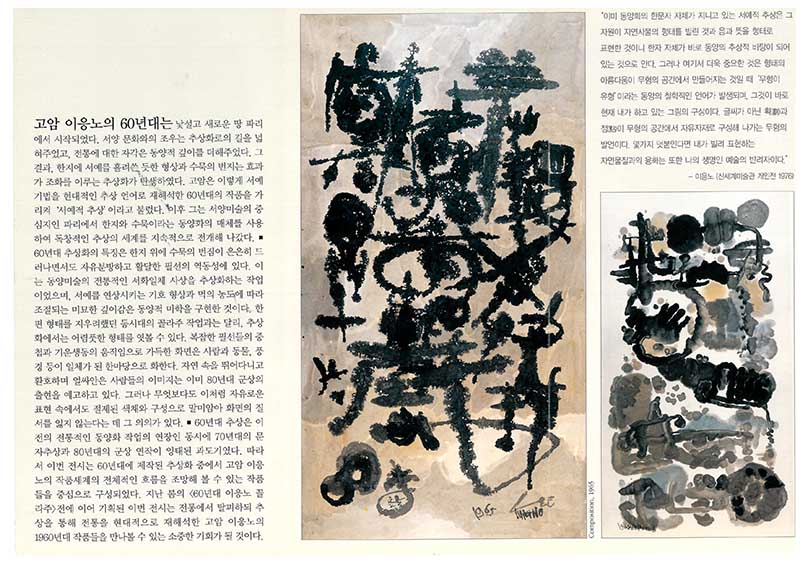 고암 이응노의 60년대는 낯설고 새로운 땅 파리
에서 시작되었다. 서양 문화와의 조우는 추상화로의 길을 넓
혀주었고, 전통에 대한 자각은 동양적 깊이를 더해주었다. 그
결과, 한지에 서예를 흘려쓴 듯한 형상과 수묵의 번지는 효과
가 조화를 이루는 추상화가 탄생하였다. 고암은 이렇게 서예
기법을 현대적인 추상 언어로 재해석한 60년대의 작품을 가
리켜 '서예적 추상'이라고 불렀다. 이후 그는 서양미술의 중
심지인 파리에서 한지와 수묵이라는 동양화의 매체를 사용
하여 독창적인 추상의 세계를 지속적으로 전개해 나갔다. ■
60년대 추상화의 특징은 한지 위에 수묵의 번짐이 은은히 드
러나면서도 자유분방하고 활달한 필선의 역동성에 있다. 이
는 동양미술의 전통적인 서화일체 사상을 추상화하는 작업
이었으며, 서예를 연상시키는 기호 형상과 먹의 농도에 따라
조절되는 미묘한 깊이감은 동양적 미학을 구현한 것이다. 한
편 형태를 지우려했던 동시대의 꼴라주 작업과는 달리, 추상
화에서는 어렴풋한 형태를 엿볼 수 있다. 복잡한 필선들의 중
첩과 기운생동의 움직임으로 가득한 화면은 사람과 동물, 풍
경 등이 일체가 된 한마당으로 화한다. 자연 속을 뛰어다니고
환호하며 얼싸안은 사람들의 이미지는 이미 80년대 군상의
출현을 예고하고 있다. 그러나 무엇보다도 이처럼 자유로운
표현 속에서도 절제된 색채와 구성으로 말미암아 화면의 질
서를 잃지 않는다는 데 그 의의가 있다. ■ 60년대 추상은 이
전의 전통적인 동양화 작업의 연장인 동시에 70년대의 문
자추상과 80년대의 군상 연작이 양태된 과도기였다. 따라
서 이번 전시는 60년대에 제작된 추상화 중에서 고암 이응
노의 작품세계의 전체적인 흐름을 조망해 볼 수 있는 작품
들을 중심으로 구성되었다. 지난 봄의 〈60년대 이응노 꼴
라주〉전에 이어 기획된 이번 전시는 전통에서 탈피하되 추
상을 통해 전통을 현대적으로 재해석한 고암 이응노의
1960년대 작품들을 만나볼 수 있는 소중한 기회가 될 것이다.
1965
UNGNO LEE
Composition, 1965
"이미 동양화의 한문자 자체가 지니고 있는 서예적 추상은 그
자원이 자연사물의 형태를 빌린 것과 음과 뜻을 형태로
표현한 것이니 한자 자체가 바로 동양의 추상적 바탕이 되어
있는 것으로 안다. 그러나 여기서 더욱 중요한 것은 형태의
아름다움이 무형의 공간에서 만들어지는 것일 때 '무형이
유형'이라는 동양의 철학적인 언어가 발생되며, 그것이 바로
현재 내가 하고 있는 그림의 구심이다. 글씨가 아닌 획(劃)과
점(點)이 무형의 공간에서 자유자재로 구성해 나가는 무형의
발언이다. 몇가지 덧붙인다면 내가 빌려 표현하는
자연물질과의 융화는 또한 나의 생명인 예술의 반려자이다."
– 이응노 (신세계미술관 개인전 1976)